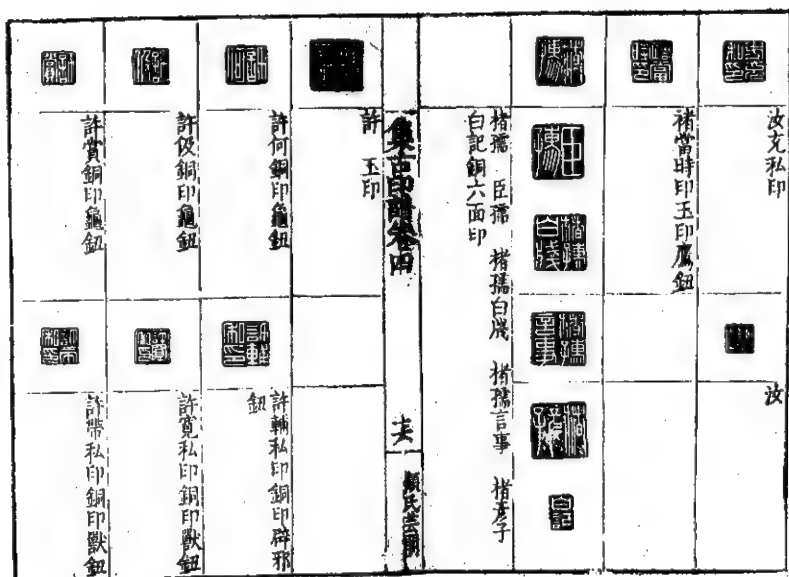 汝充私印
汝
褚當時印玉印鳳鈕
褚孺　臣孺　褚孺白牋　褚孺言事　褚彦子
白記銅六面印
集古印譜卷四
顧氏芸閣
許　玉印
許何銅印龜鈕
許輔私印銅印辟邪
鈕
許伋銅印龜鈕
許寛私印銅印獸鈕
許賞銅印龜鈕
許帶私印銅印獸鈕